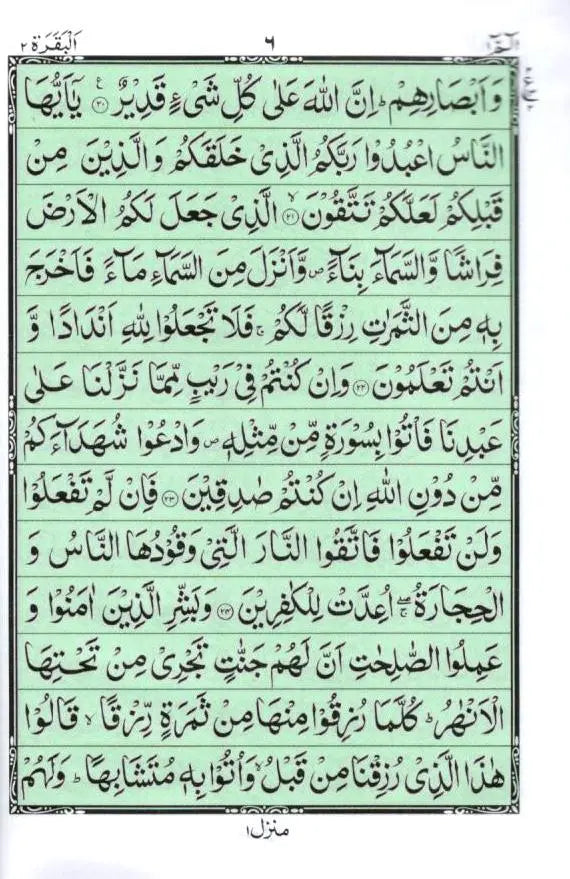 الٓمّٓ ١ ٦ اَلْبَقَرَة ٢
وَاَبْصَارِهِمْ ؕ اِنَّ اللّٰهَ عَلٰى كُلِّ شَىْءٍ قَدِيْرٌ ﴿۲۰﴾ يٰۤاَيُّهَا
النَّاسُ اعْبُدُوْا رَبَّكُمُ الَّذِىْ خَلَقَكُمْ وَالَّذِيْنَ مِنْ
قَبْلِكُمْ لَعَلَّكُمْ تَتَّقُوْنَ ﴿۲۱﴾ۙ الَّذِىْ جَعَلَ لَكُمُ الْاَرْضَ
فِرَاشًا وَّالسَّمَآءَ بِنَآءً ص وَّاَنْزَلَ مِنَ السَّمَآءِ مَآءً فَاَخْرَجَ
بِهٖ مِنَ الثَّمَرٰتِ رِزْقًا لَّكُمْ ۚ فَلَا تَجْعَلُوْا لِلّٰهِ اَنْدَادًا وَّ
اَنْتُمْ تَعْلَمُوْنَ ﴿۲۲﴾ وَاِنْ كُنْتُمْ فِىْ رَيْبٍ مِّمَّا نَزَّلْنَا عَلٰى
عَبْدِنَا فَاْتُوْا بِسُوْرَةٍ مِّنْ مِّثْلِهٖ ص وَادْعُوْا شُهَدَآءَكُمْ
مِّنْ دُوْنِ اللّٰهِ اِنْ كُنْتُمْ صٰدِقِيْنَ ﴿۲۳﴾ فَاِنْ لَّمْ تَفْعَلُوْا
وَلَنْ تَفْعَلُوْا فَاتَّقُوا النَّارَ الَّتِىْ وَقُوْدُهَا النَّاسُ وَ
الْحِجَارَةُ ۖۚ اُعِدَّتْ لِلْكٰفِرِيْنَ ﴿۲۴﴾ وَبَشِّرِ الَّذِيْنَ اٰمَنُوْا وَ
عَمِلُوا الصّٰلِحٰتِ اَنَّ لَهُمْ جَنّٰتٍ تَجْرِىْ مِنْ تَحْتِهَا
الْاَنْهٰرُ ؕ كُلَّمَا رُزِقُوْا مِنْهَا مِنْ ثَمَرَةٍ رِّزْقًا ۙ قَالُوْا
هٰذَا الَّذِىْ رُزِقْنَا مِنْ قَبْلُ ۙ وَاُتُوْا بِهٖ مُتَشَابِهًا ؕ وَلَهُمْ
منزل ١